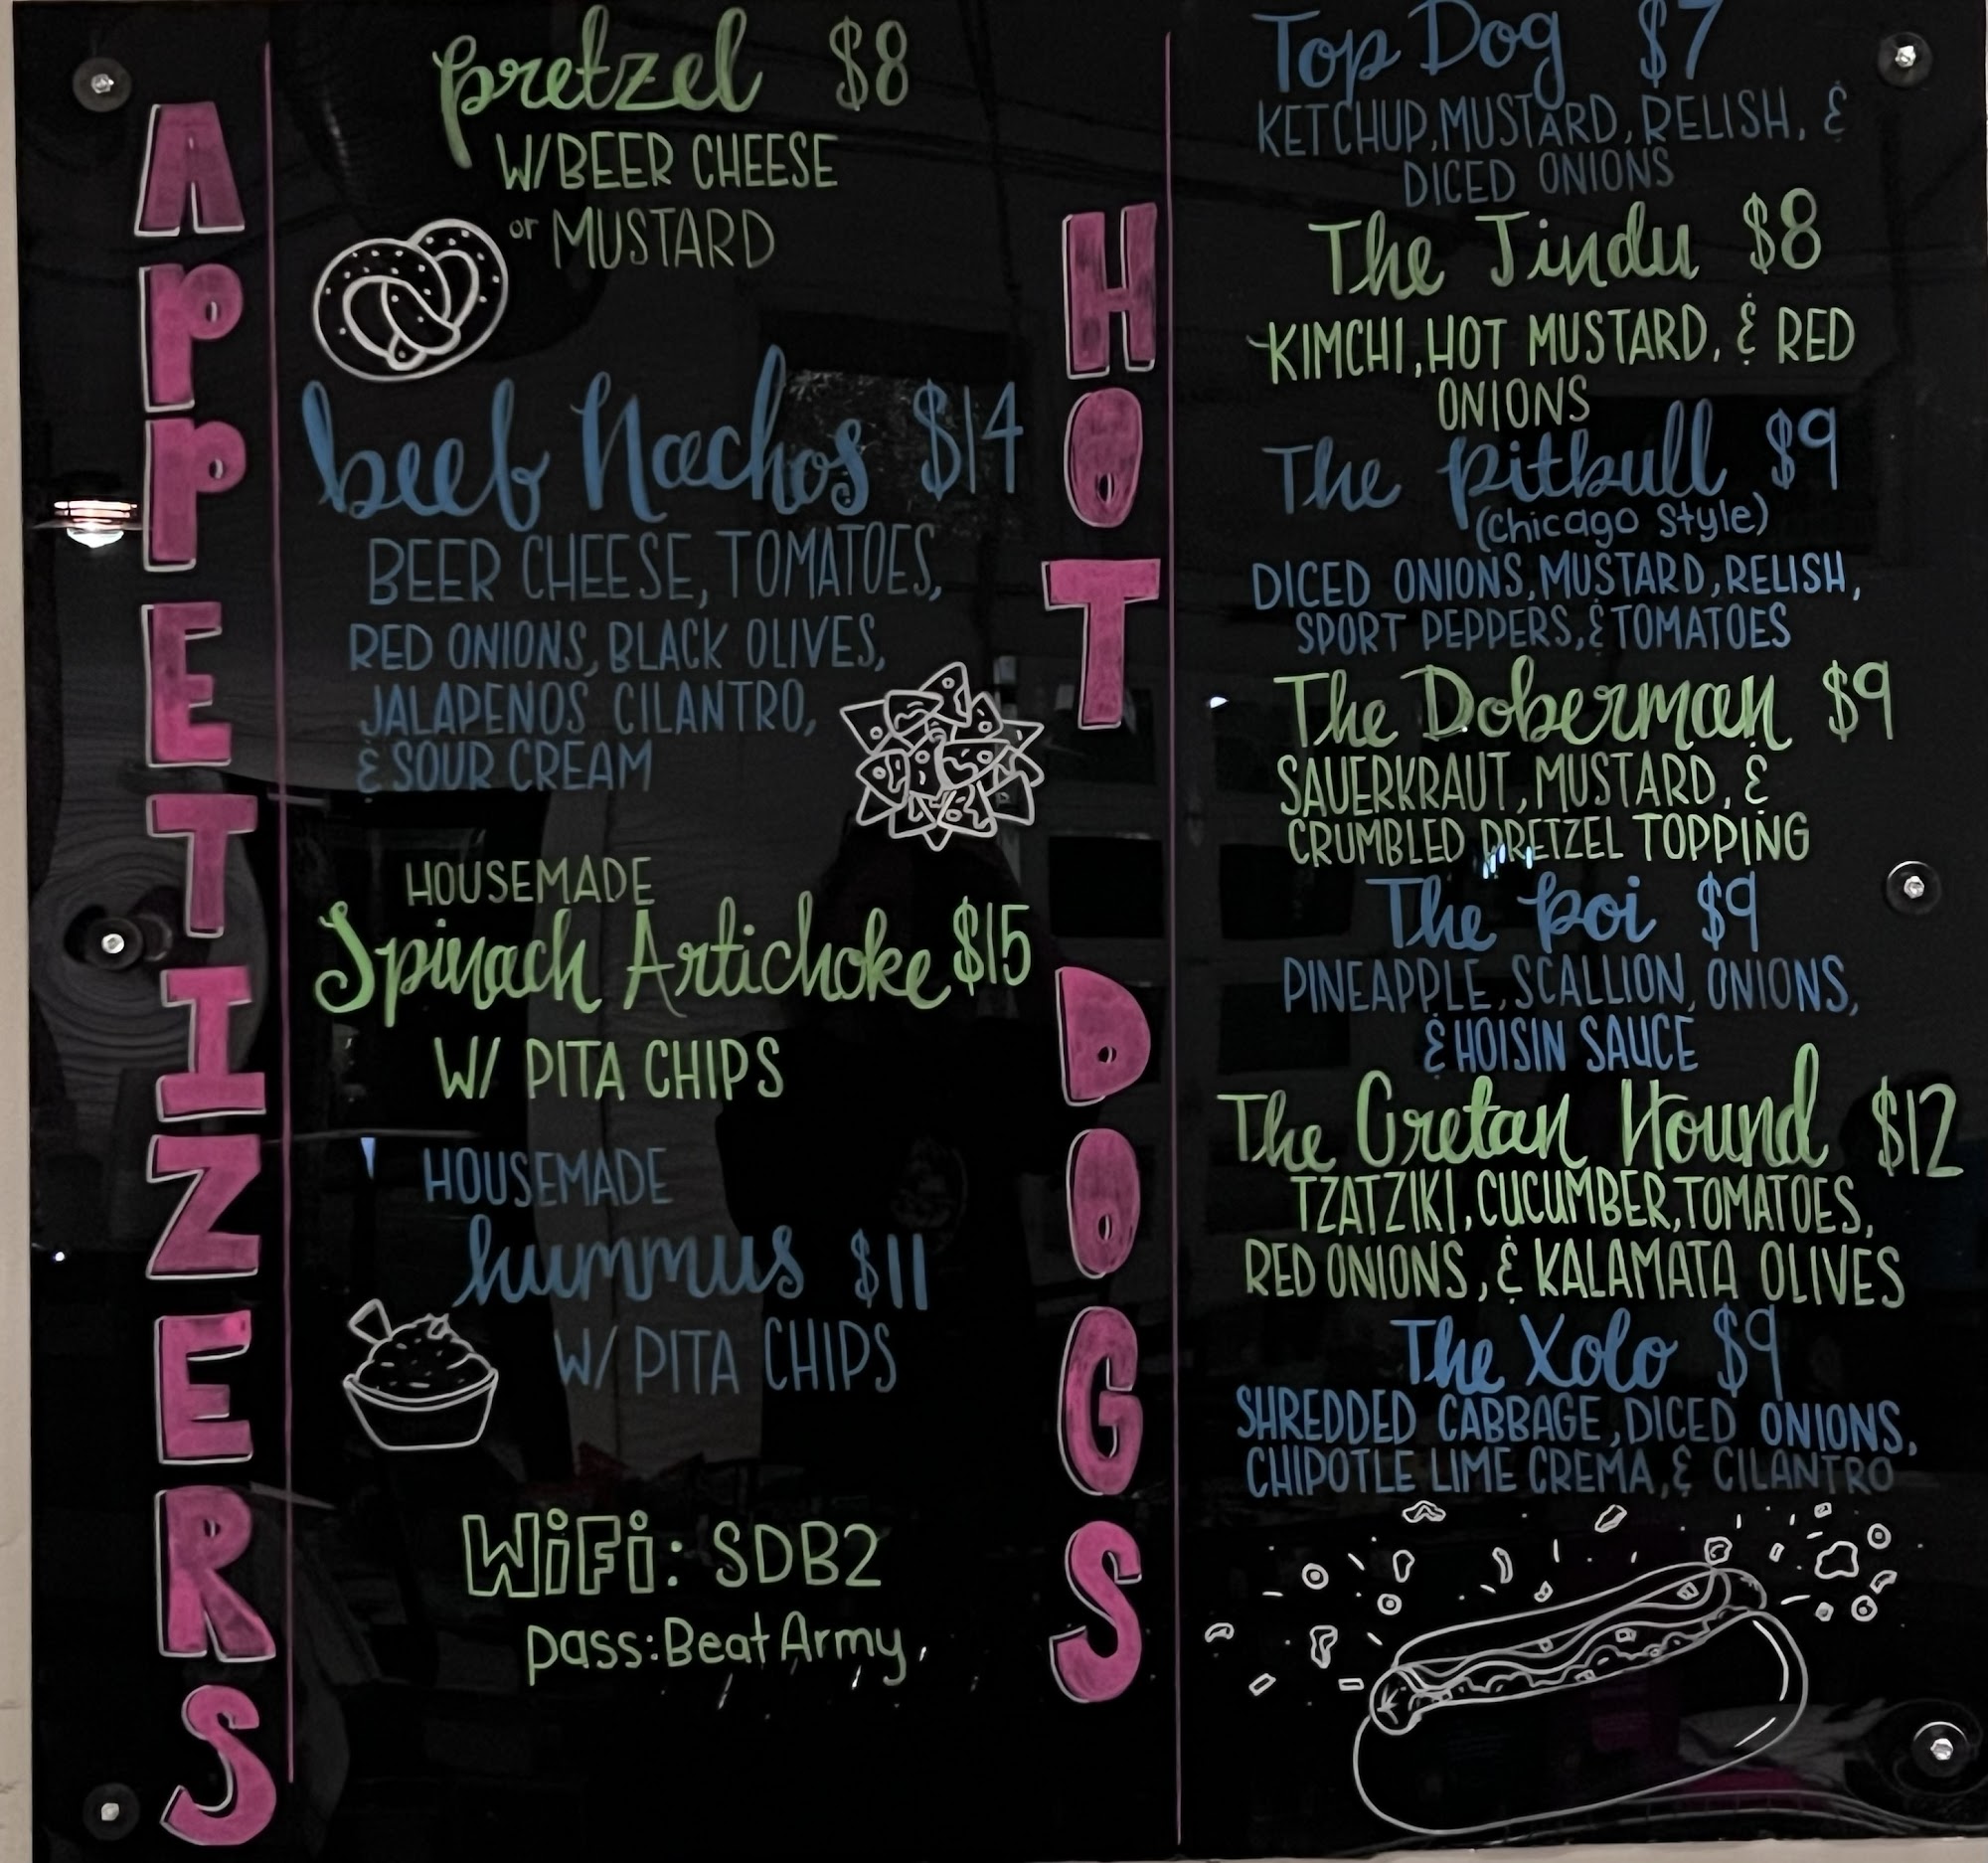 APPETIZERS
pretzel $8
W/BEER CHEESE
or MUSTARD
beef Nachos $14
BEER CHEESE, TOMATOES,
RED ONIONS, BLACK OLIVES,
JALAPENOS CILANTRO,
& SOUR CREAM
HOUSEMADE
Spinach Artichoke $15
W/ PITA CHIPS
HOUSEMADE
hummus $11
W/ PITA CHIPS
WiFi: SDB2
pass: Beat Army
HOT DOGS
Top Dog $7
KETCHUP, MUSTARD, RELISH, &
DICED ONIONS
The Jindu $8
KIMCHI, HOT MUSTARD, & RED
ONIONS
The pitbull $9
(Chicago Style)
DICED ONIONS, MUSTARD, RELISH,
SPORT PEPPERS, & TOMATOES
The Doberman $9
SAUERKRAUT, MUSTARD, &
CRUMBLED PRETZEL TOPPING
The poi $9
PINEAPPLE, SCALLION, ONIONS,
& HOISIN SAUCE
The Cretan Hound $12
TZATZIKI, CUCUMBER, TOMATOES,
RED ONIONS, & KALAMATA OLIVES
The Xolo $9
SHREDDED CABBAGE, DICED ONIONS,
CHIPOTLE LIME CREMA, & CILANTRO